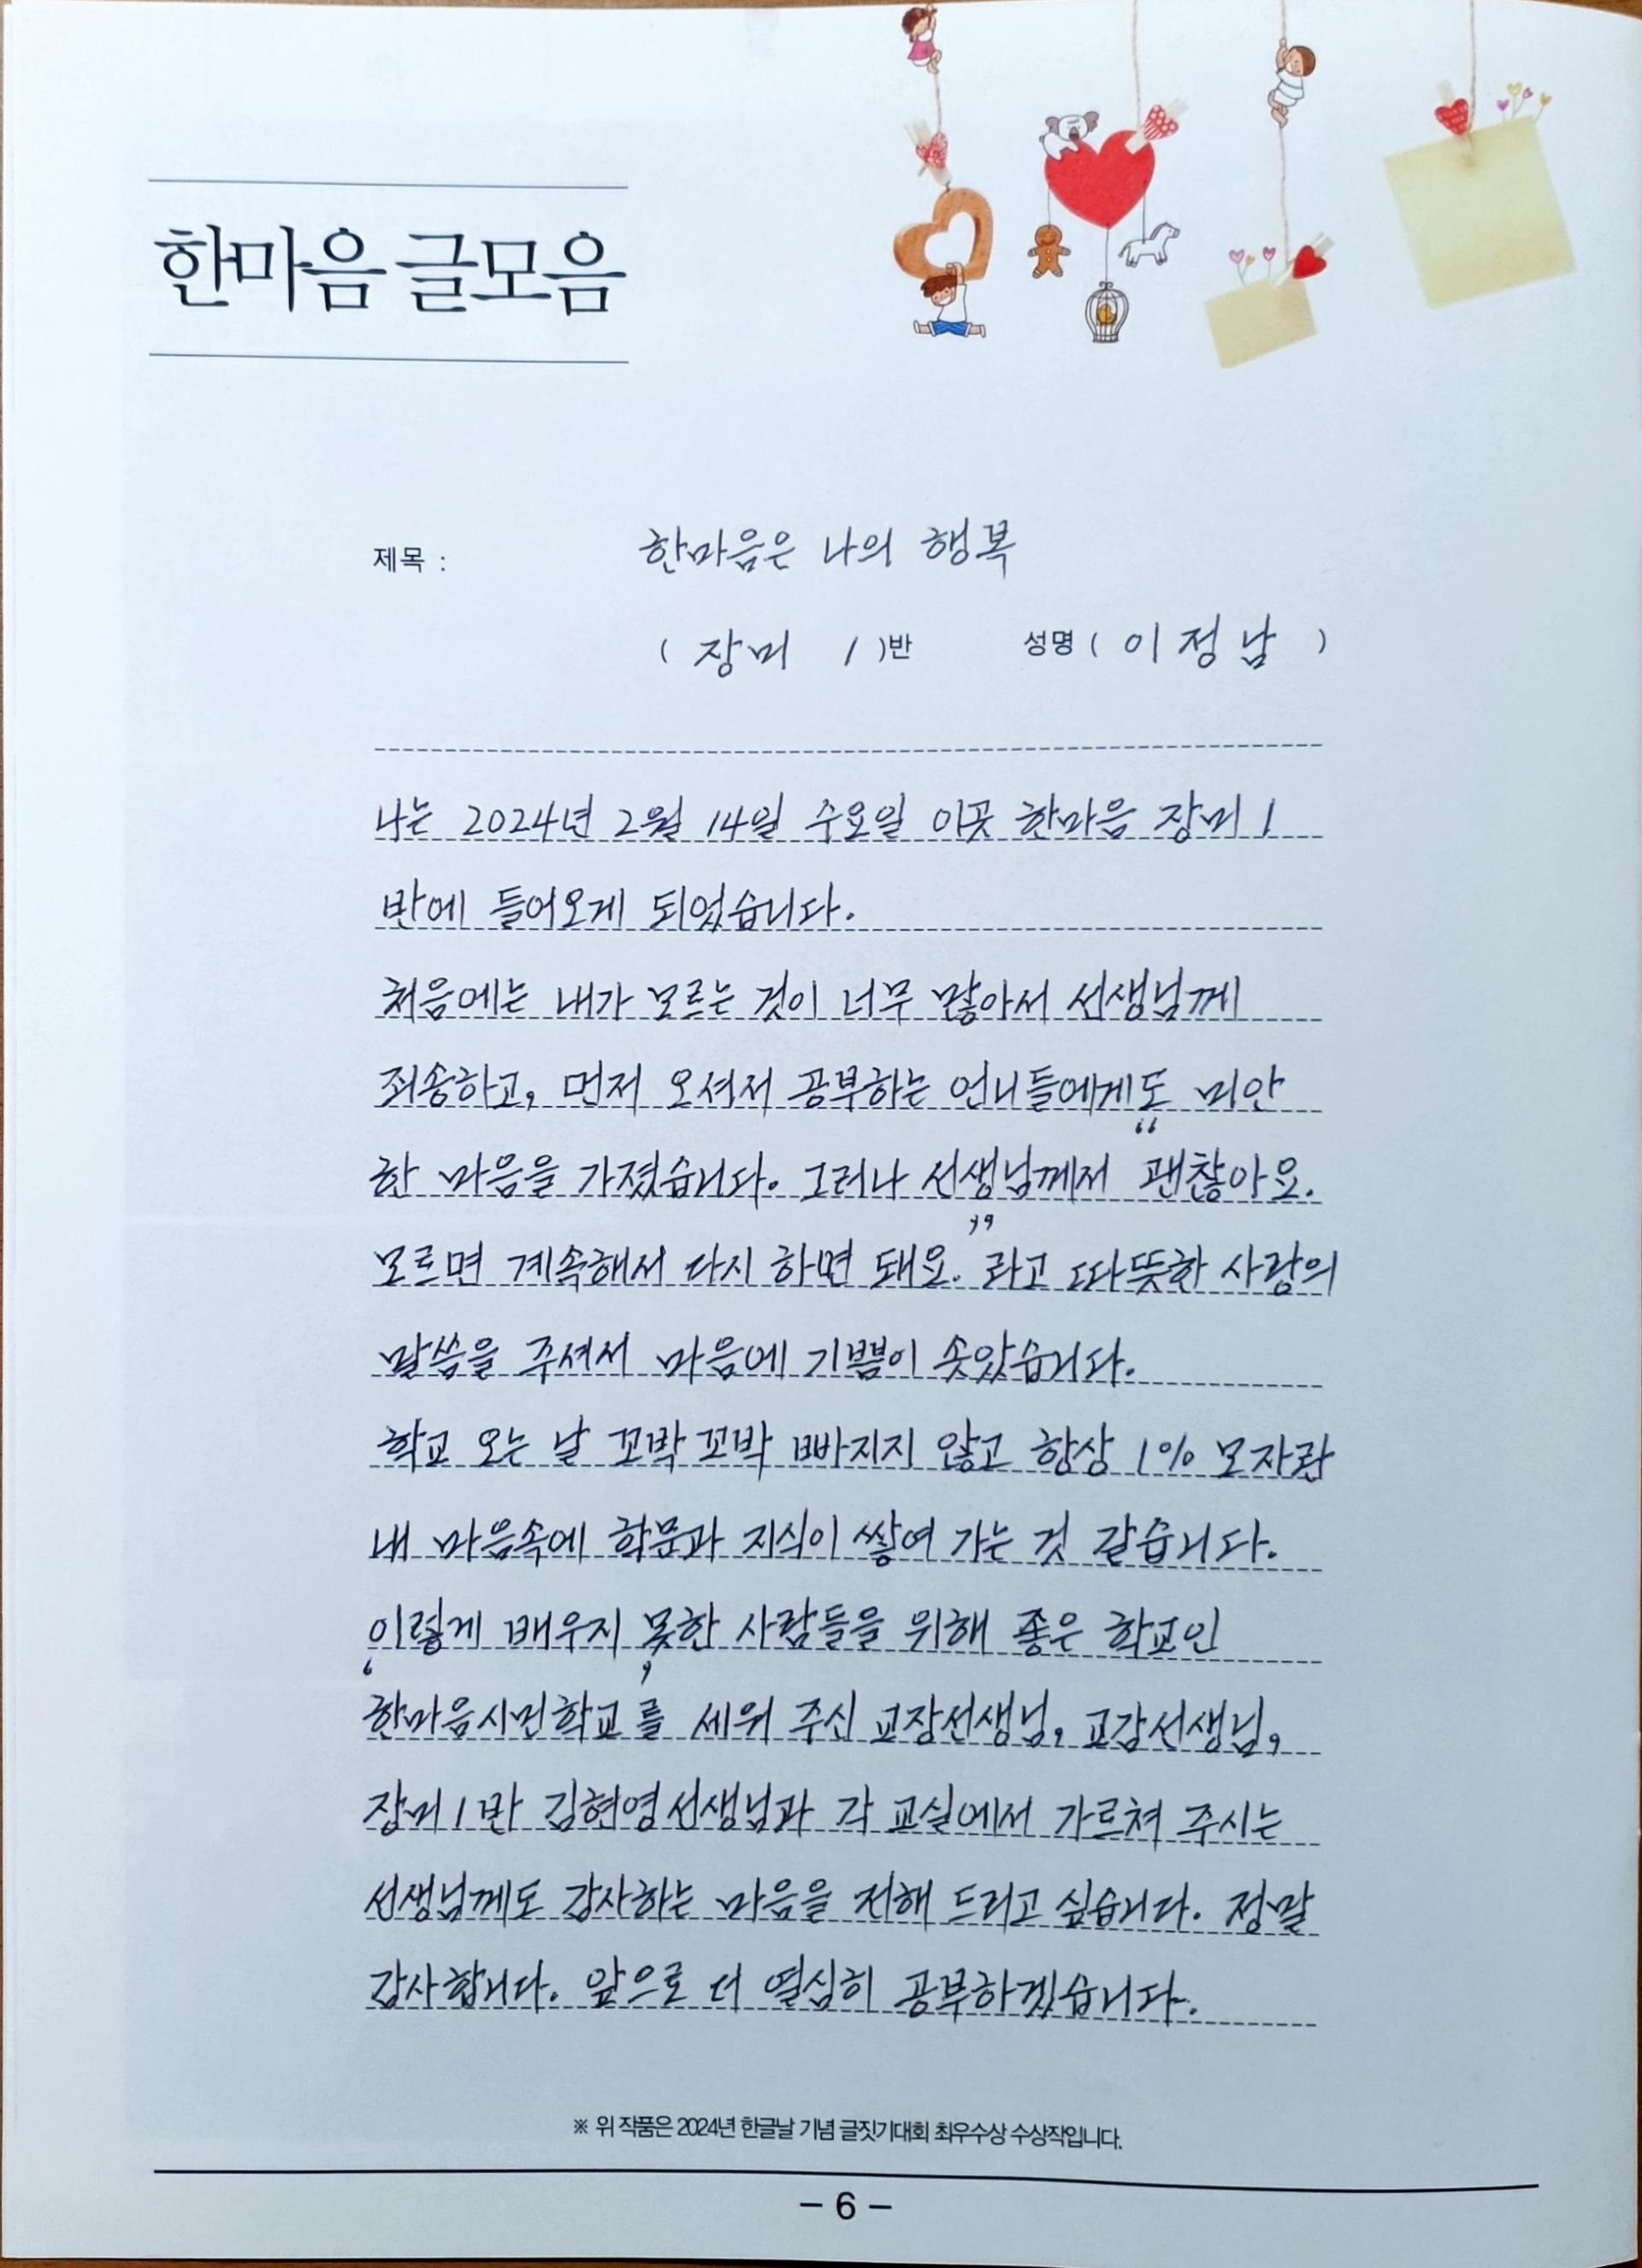 한마음 글모음
제목 : 한마음은 나의 행복
( 장미 1 )반 성명 ( 이정남 )
나는 2024년 2월 14일 수요일 이곳 한마음 장미 1
반에 들어오게 되었습니다.
처음에는 내가 모르는 것이 너무 많아서 선생님께
죄송하고, 먼저 오셔서 공부하는 언니들에게도 미안
한 마음을 가졌습니다. 그러나 선생님께서 “괜찮아요.
모르면 계속해서 다시 하면 돼요.”라고 따뜻한 사랑의
말씀을 주셔서 마음에 기쁨이 솟았습니다.
학교 오는 날 꼬박꼬박 빠지지 않고 항상 1% 모자란
내 마음속에 학문과 지식이 쌓여 가는 것 같습니다.
이렇게 배우지 못한 사람들을 위해 좋은 학교인
‘한마음시민학교’를 세워 주신 교장선생님, 교감선생님,
장미1반 김현영선생님과 각 교실에서 가르쳐 주시는
선생님께도 감사하는 마음을 전해 드리고 싶습니다. 정말
감사합니다. 앞으로 더 열심히 공부하겠습니다.
※ 위 작품은 2024년 한글날 기념 글짓기대회 최우수상 수상작입니다.
– 6 –